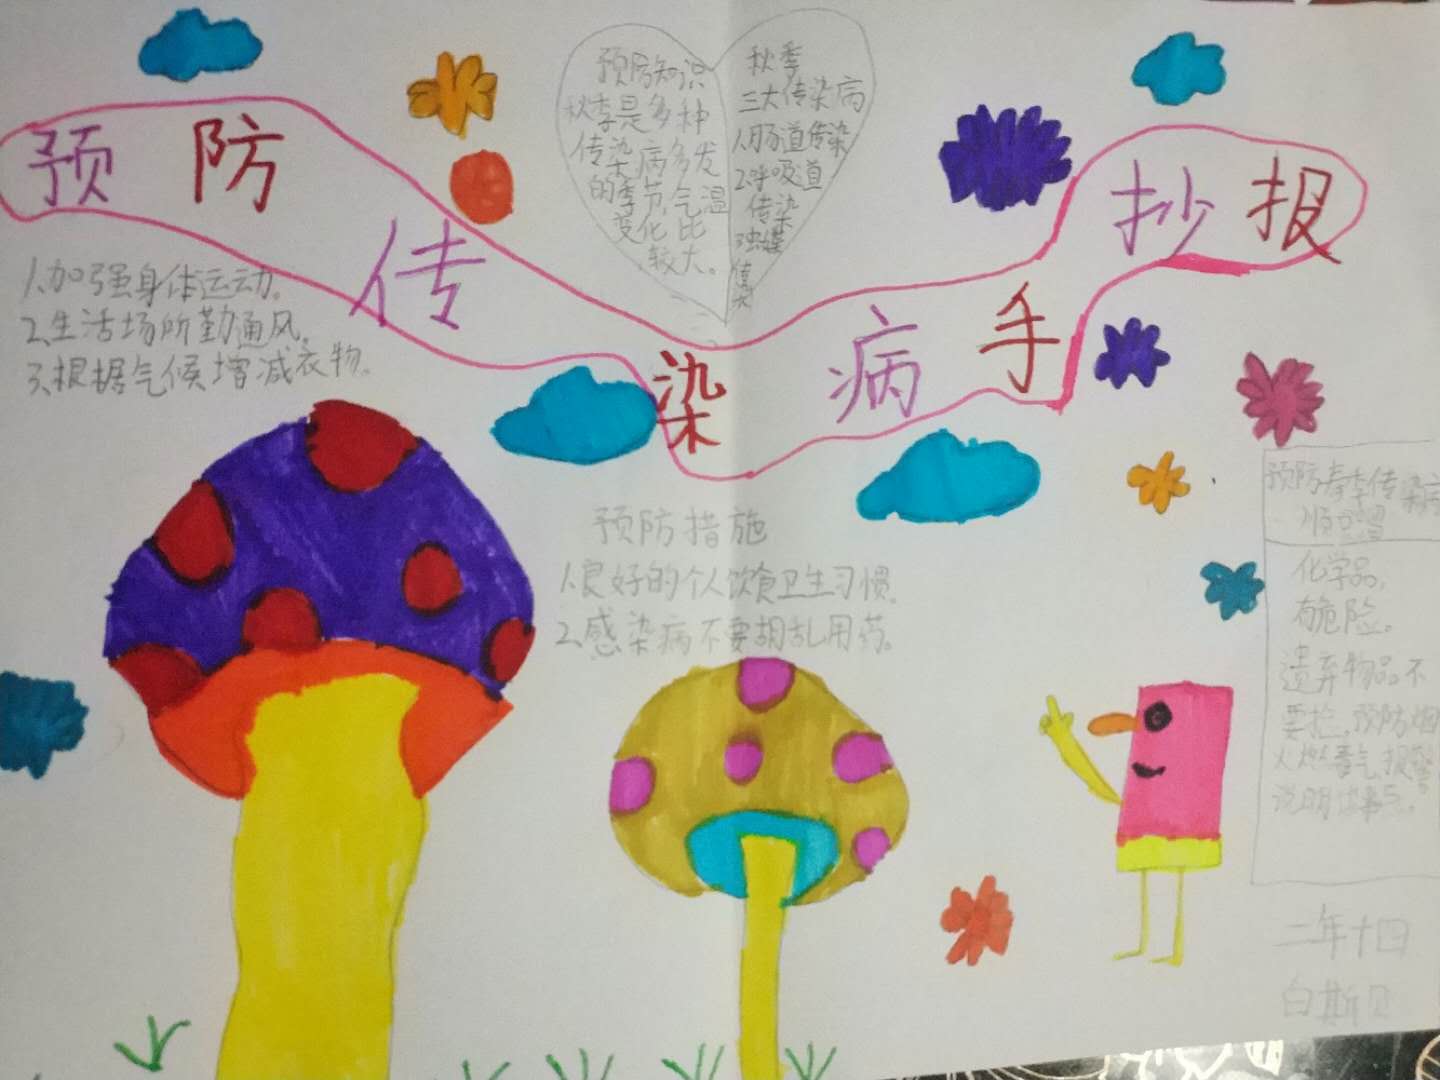 预防传染病手抄报
预防知识
秋季是多种
传染病多发
的季节,气温
变化比
较大。
秋季
三大传染病
1.肠道传染
2.呼吸道
传染
1.加强身体运动。
2.生活场所勤通风。
3.根据气候增减衣物。
预防措施
1.良好的个人饮食卫生习惯.
2.感染病不要胡乱用药。
预防春季传染病
化学品,
有危险。
遗弃物品不
要捡,预防烟
二年十四
白斯贝